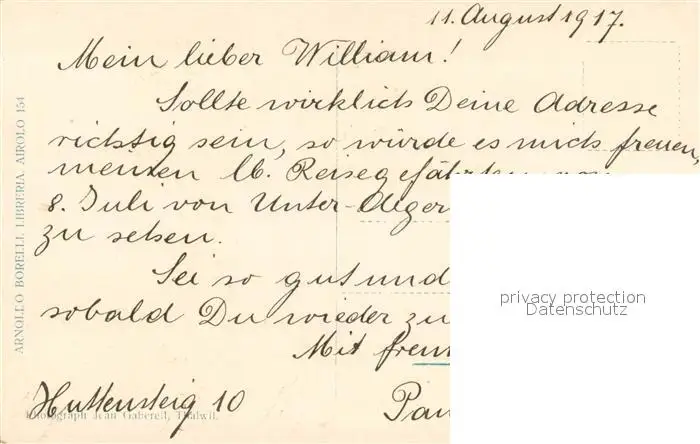 11. August 1917.
Mein lieber William!
Sollte wirklich Deine Adresse
richtig sein, so würde es mich freuen,
meinen lb. Reisegefährten
8. Juli von Unter-
zu sehen.
Sei so gut und
sobald Du wieder zu
Mit
Huttensteig 10
ARNOLDO BORELLI, LIBRERIA, AIROLO 154
Photograph Jean Gaberell, Thalwil.
privacy protection
Datenschutz